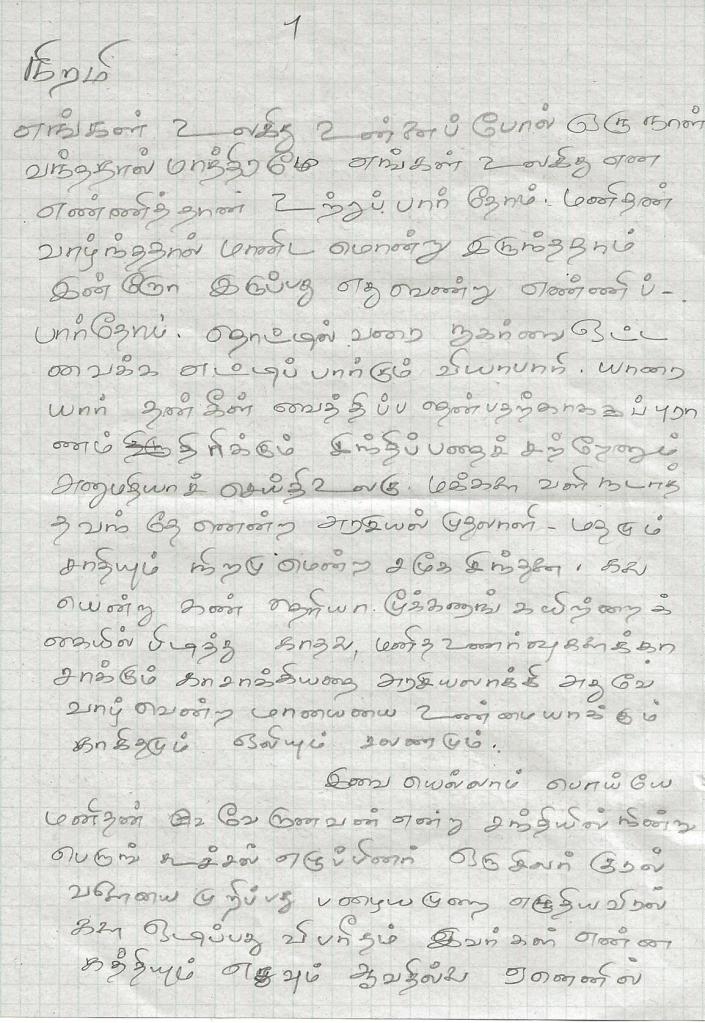 1
நிறம்
எங்கள் உலகிது உன்னைப் போல் ஒரு நாள்
வந்ததால் மாத்திரமே எங்கள் உலகிது என
எண்ணித்தான் உற்றுப் பார் தோம். மனிதன்
வாழ்ந்ததால் மானிட மொன்று இருந்ததாம்
இன்றோ இருப்பது எது வென்று எண்ணிப் -
பார்தோம். தொட்டில் வரை நகர்வை ஒட்ட
வைக்க எட்டிப் பார்கும் வியாபாரி. யாரை
யார் தன்கீள் வைத்திப்ப தென்பதற்காகப் புரா
ணம் திரிக்கும் சிந்திப்பதைச் சற்றேனும்
அனுமதியாச் செய்தி உலகு. மக்களை வளி நடாத்
தவந் தே னென்ற அரசியல் முதலாளி - மதமும்
சாதியும் நிறமு மென்ற சமூக சிந்தனை. கலை
யென்று கண் தெரியா. மூக்கணாங் கயிற்றைக்
கையில் பிடித்து காதல், மனித உணர்வுகளைக்கா
சாக்கும் காசாக்கியதை அரசியலாக்கி அதுவே
வாழ் வென்ற மாயையை உண்மையாக்கும்
காகிதமும் ஒலியும் சலனமும்.
இவை யெல்லாம் பொய்யே
மனிதன் வேறானவன் என்று சந்தியில் நின்று
பெருங் கூச்சல் எழுப்பினர் ஒரு சிலர் குரல்
வளையை முறிப்பது பழையமுறை எழுதிய விரல்
களை ஒடிப்பது விபரீதம் இவர்கள் என்ன
கத்தியும் எதுவும் ஆவதில்லை ஏனெனில்